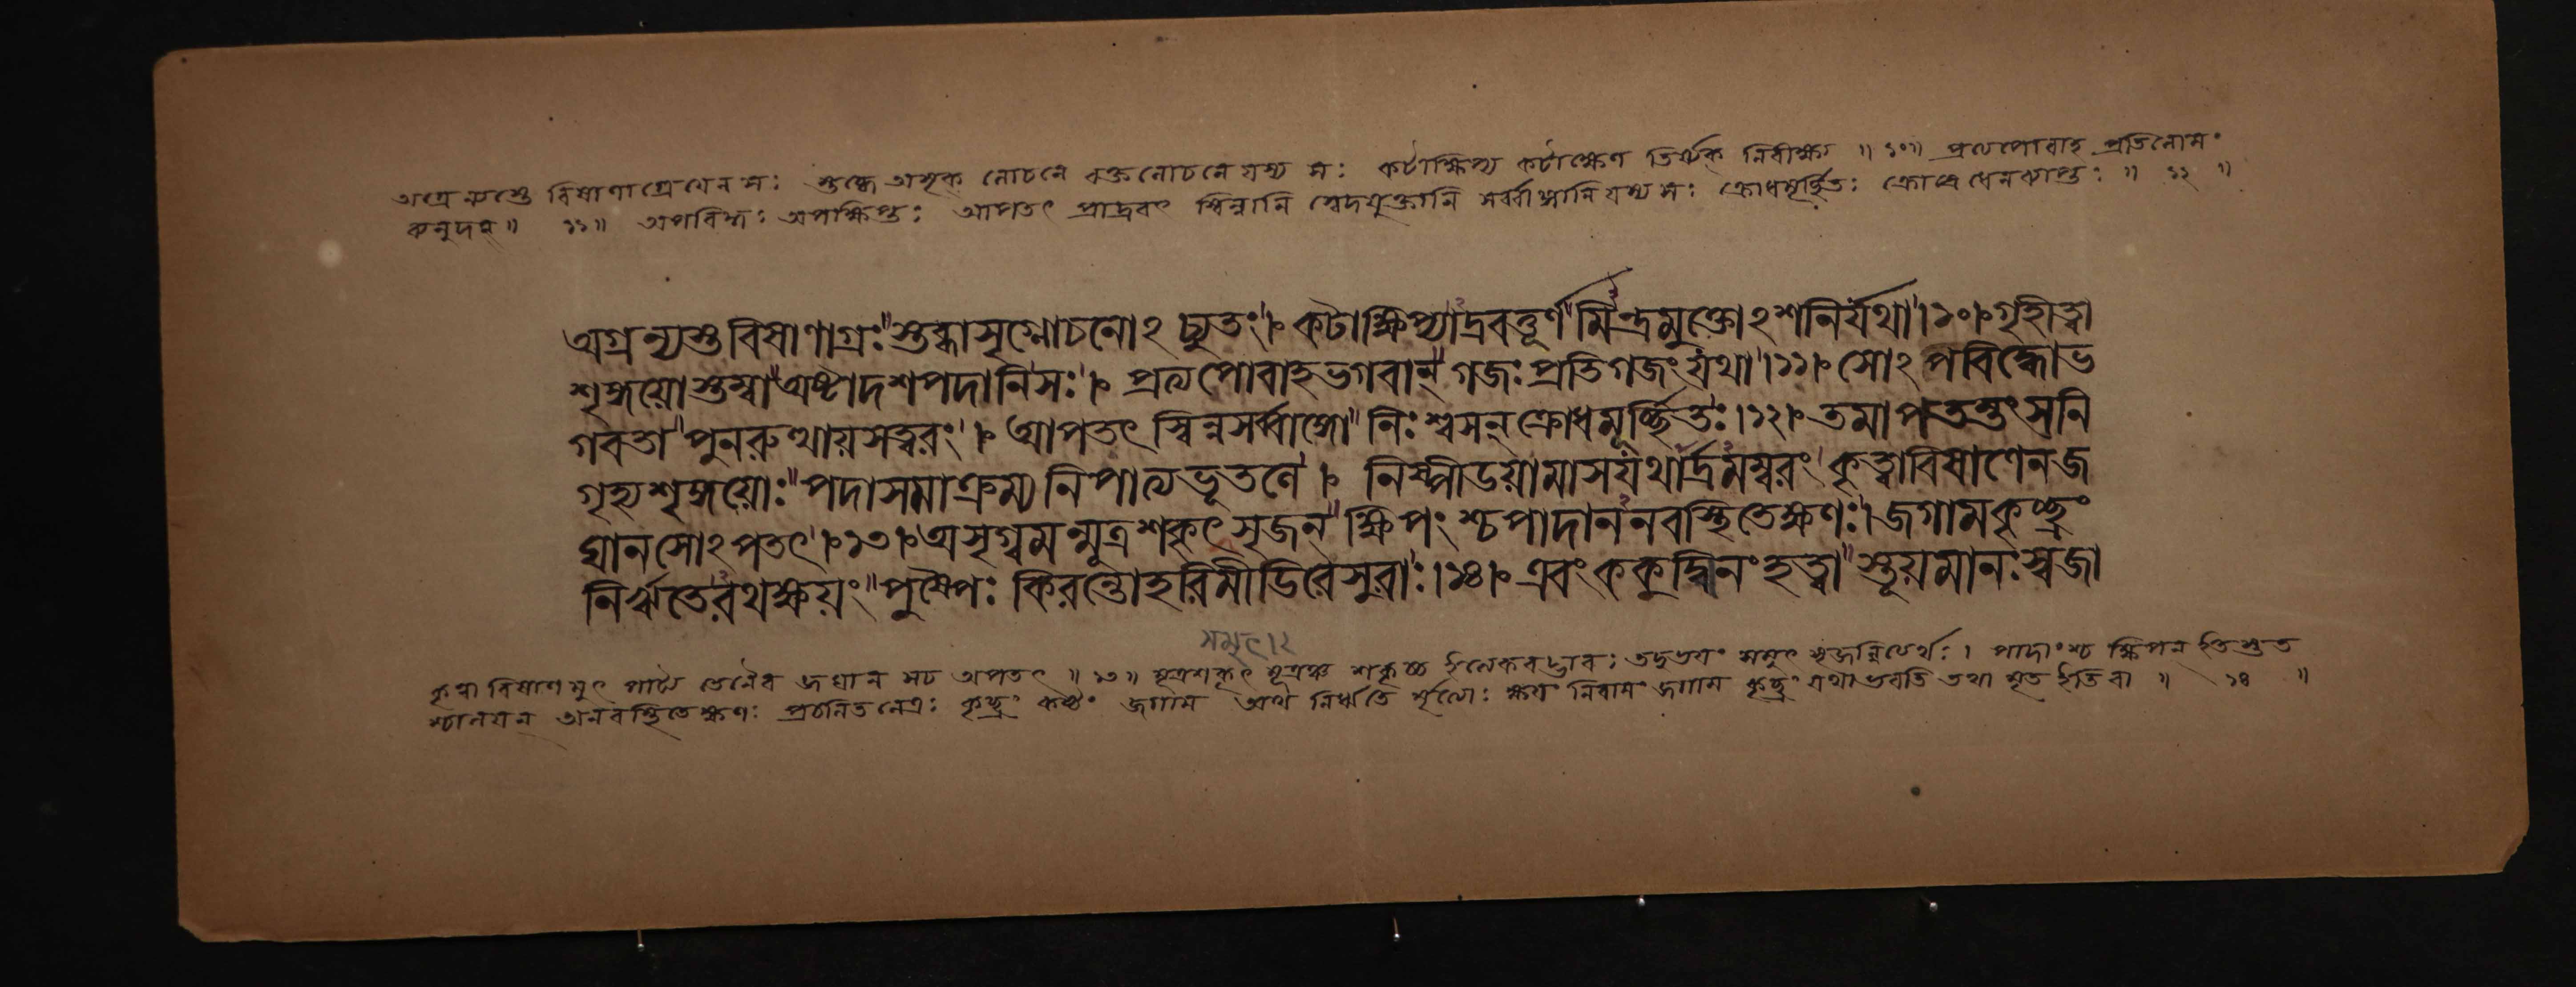 অগ্রে ন্যস্তে বিষাণাগ্রে যেন সঃ স্তব্ধে অসৃক্ লোচনে রক্তলোচনে যস্য সঃ কটাক্ষিপ্য কটাক্ষেণ তির্য্যক্ নিরীক্ষ্য ॥ ১০॥ প্রত্যপোবাহ প্রতিলোমং
॥ ১১॥ অপবিদ্ধঃ অপক্ষিপ্তঃ আপতৎ প্রাদ্রবৎ স্বিন্নানি স্বেদযুক্তানি সর্ব্বাঙ্গানি যস্য সঃ ক্রোধমূর্চ্ছিতঃ ক্রোধেন ব্যাপ্তঃ ॥ ১২ ॥
অগ্রন্যস্তবিষাণাগ্রঃ"স্তব্ধাসৃগ্লোচনোঽচ্যুতং। কটাক্ষিপ্যাদ্রবত্তূর্ণ"মিন্দ্রমুক্তোঽশনির্যথা।১০। গৃহীত্বা
শৃঙ্গয়োস্তম্বা"অষ্টাদশপদানিসঃ। প্রত্যপোবাহভগবান্"গজঃপ্রতিগজংযথা।১১। সোঽপবিদ্ধোভ
গবতা"পুনরুত্থায়সত্বরং। আপতৎ স্বিন্নসর্ব্বাঙ্গো"নিঃশ্বসন্ক্রোধমূর্চ্ছিতঃ।১২। তমাপতন্তংসনি
গৃহ্যশৃঙ্গয়োঃ"পদাসমাক্রম্যনিপাত্যভূতলে। নিষ্পীডয়ামাসযথার্দ্রমম্বরং"কৃত্বাবিষাণেনজ
ঘানসোঽপতৎ।১৩।অসৃগ্বমন্মূত্রশকৃৎ সৃজন্"ক্ষিপংশ্চপাদাননবস্থিতেক্ষণঃ। জগামকৃচ্ছ্রং
নিরৃতেরথক্ষয়ং"পুষ্পৈঃ কিরন্তোহরিমীডিরেসুরাঃ।১৪। এবং ককুদ্মিনং হত্বা"স্তূয়মানঃস্বজা
সমুৎ।২
কৃত্বা বিষাণমুৎপাট্য তেনৈব জঘান সচ অপতৎ ॥ ১৩॥ মূত্রশকৃৎ মূত্রঞ্চ শকৃচ্চ ইত্যেকবদ্ভাবঃ তদুভয়ং সমুৎ সৃজন্নিত্যর্থঃ। পাদাংশ্চ ক্ষিপন্ ইতস্তত
শ্চালয়ন্ অনবস্থিতেক্ষণঃ প্রচলিতনেত্রঃ কৃচ্ছ্রং কষ্টং জগাম অথ নিরৃতে র্মৃত্যোঃ ক্ষয়ং নিবাসং জগাম কৃচ্ছ্রং যথা ভবতি তথা মৃত ইতি বা ॥ ১৪ ॥